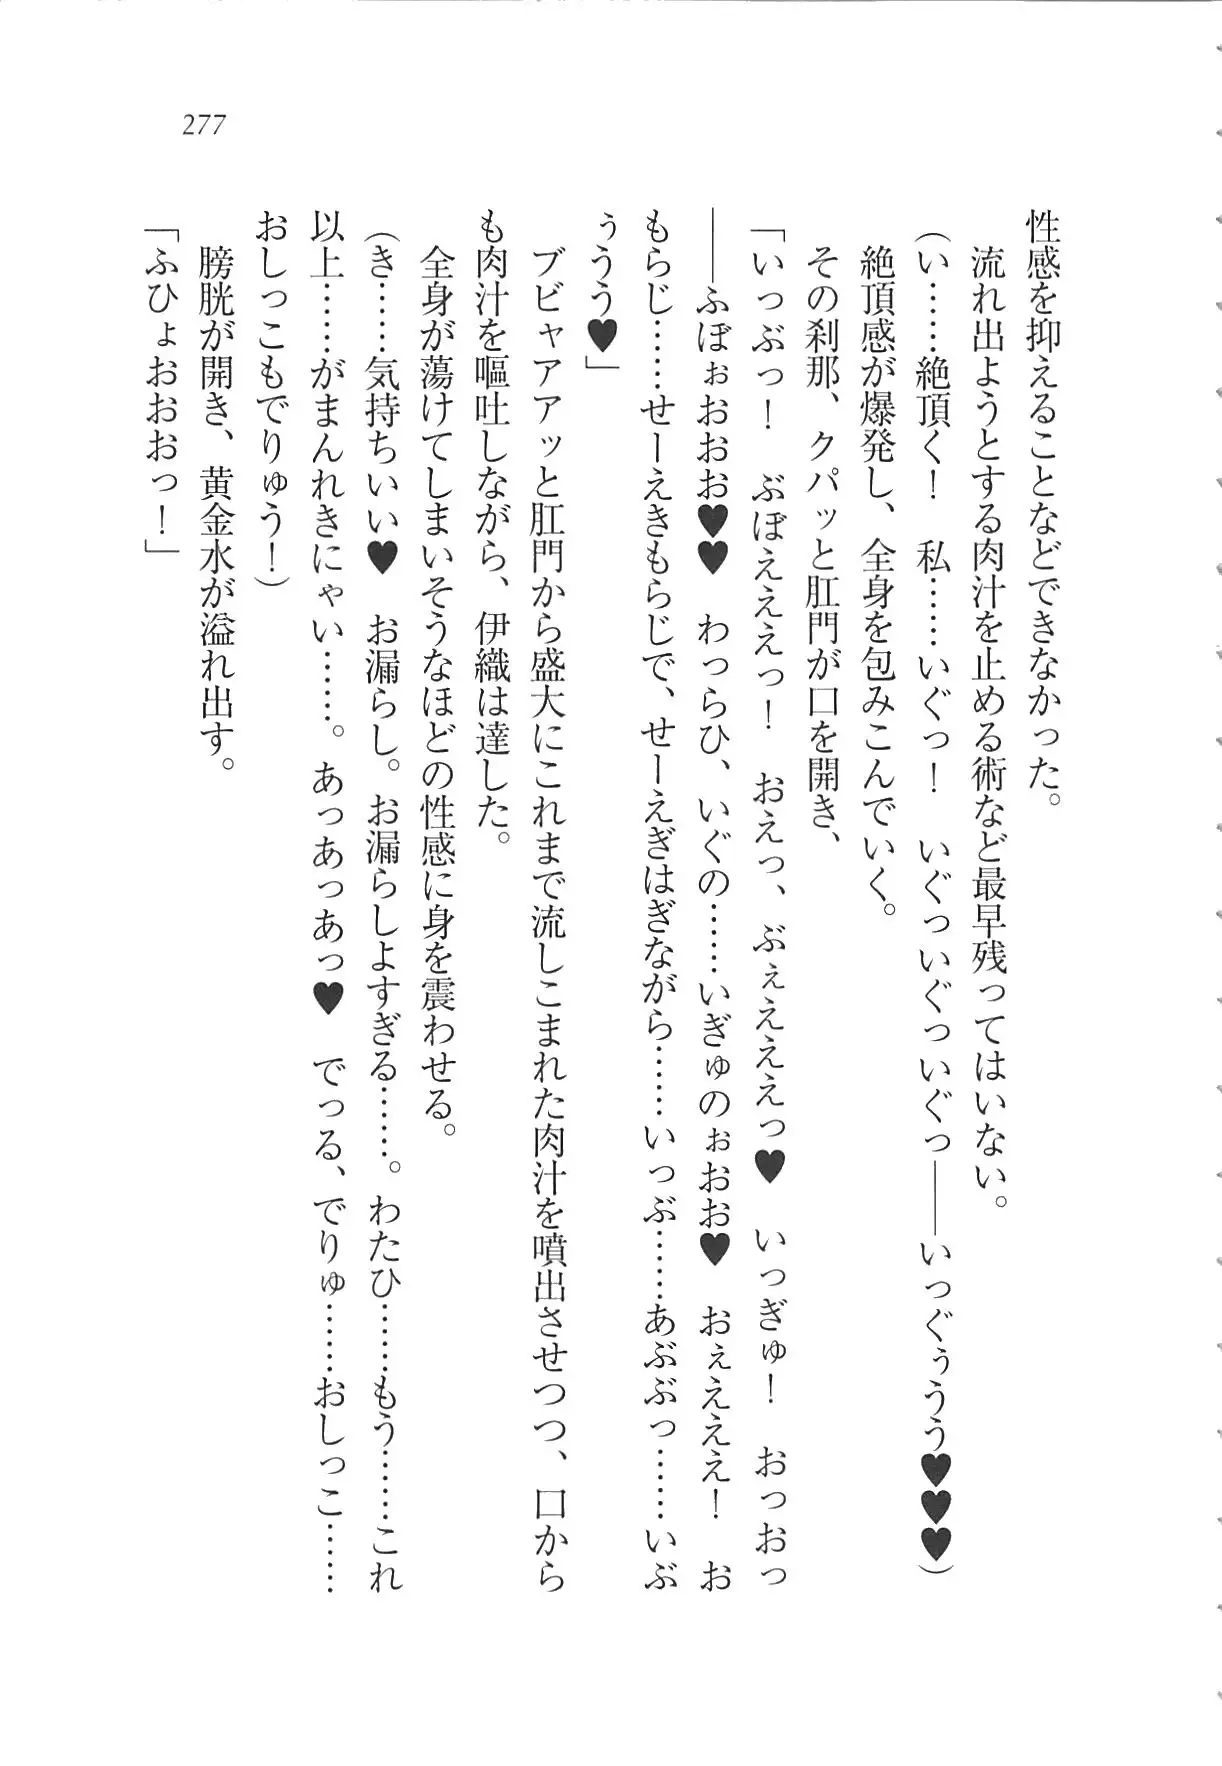 277
性感を抑えることなどできなかった。
流れ出ようとする肉汁を止める術など最早残ってはいない。
（い……絶頂く！　私……いぐっ！　いぐっいぐっいぐっ――いっぐぅうう♥♥♥）
絶頂感が爆発し、全身を包みこんでいく。
その刹那、クパッと肛門が口を開き、
「いっぶっ！　ぶぼえええっ！　おえっ、ぶぇえええっ♥　いっぎゅ！　おっおっ
――ふぼぉおおお♥♥　わっらひ、いぐの……いぎゅのぉおお♥　おぇえええ！　お
もらじ……せーえきもらじで、せーえぎはぎながら……いっぶ……あぶぶっ……いぶ
ぅうう♥」
ブビャアアッと肛門から盛大にこれまで流しこまれた肉汁を噴出させつつ、口から
も肉汁を嘔吐しながら、伊織は達した。
全身が蕩けてしまいそうなほどの性感に身を震わせる。
（き……気持ちいい♥　お漏らし。お漏らしよすぎる……。わたひ……もう……これ
以上……がまんれきにゃい……。あっあっあっ♥　でっる、でりゅ……おしっこ……
おしっこもでりゅう！）
膀胱が開き、黄金水が溢れ出す。
「ふひょおおおっ！」